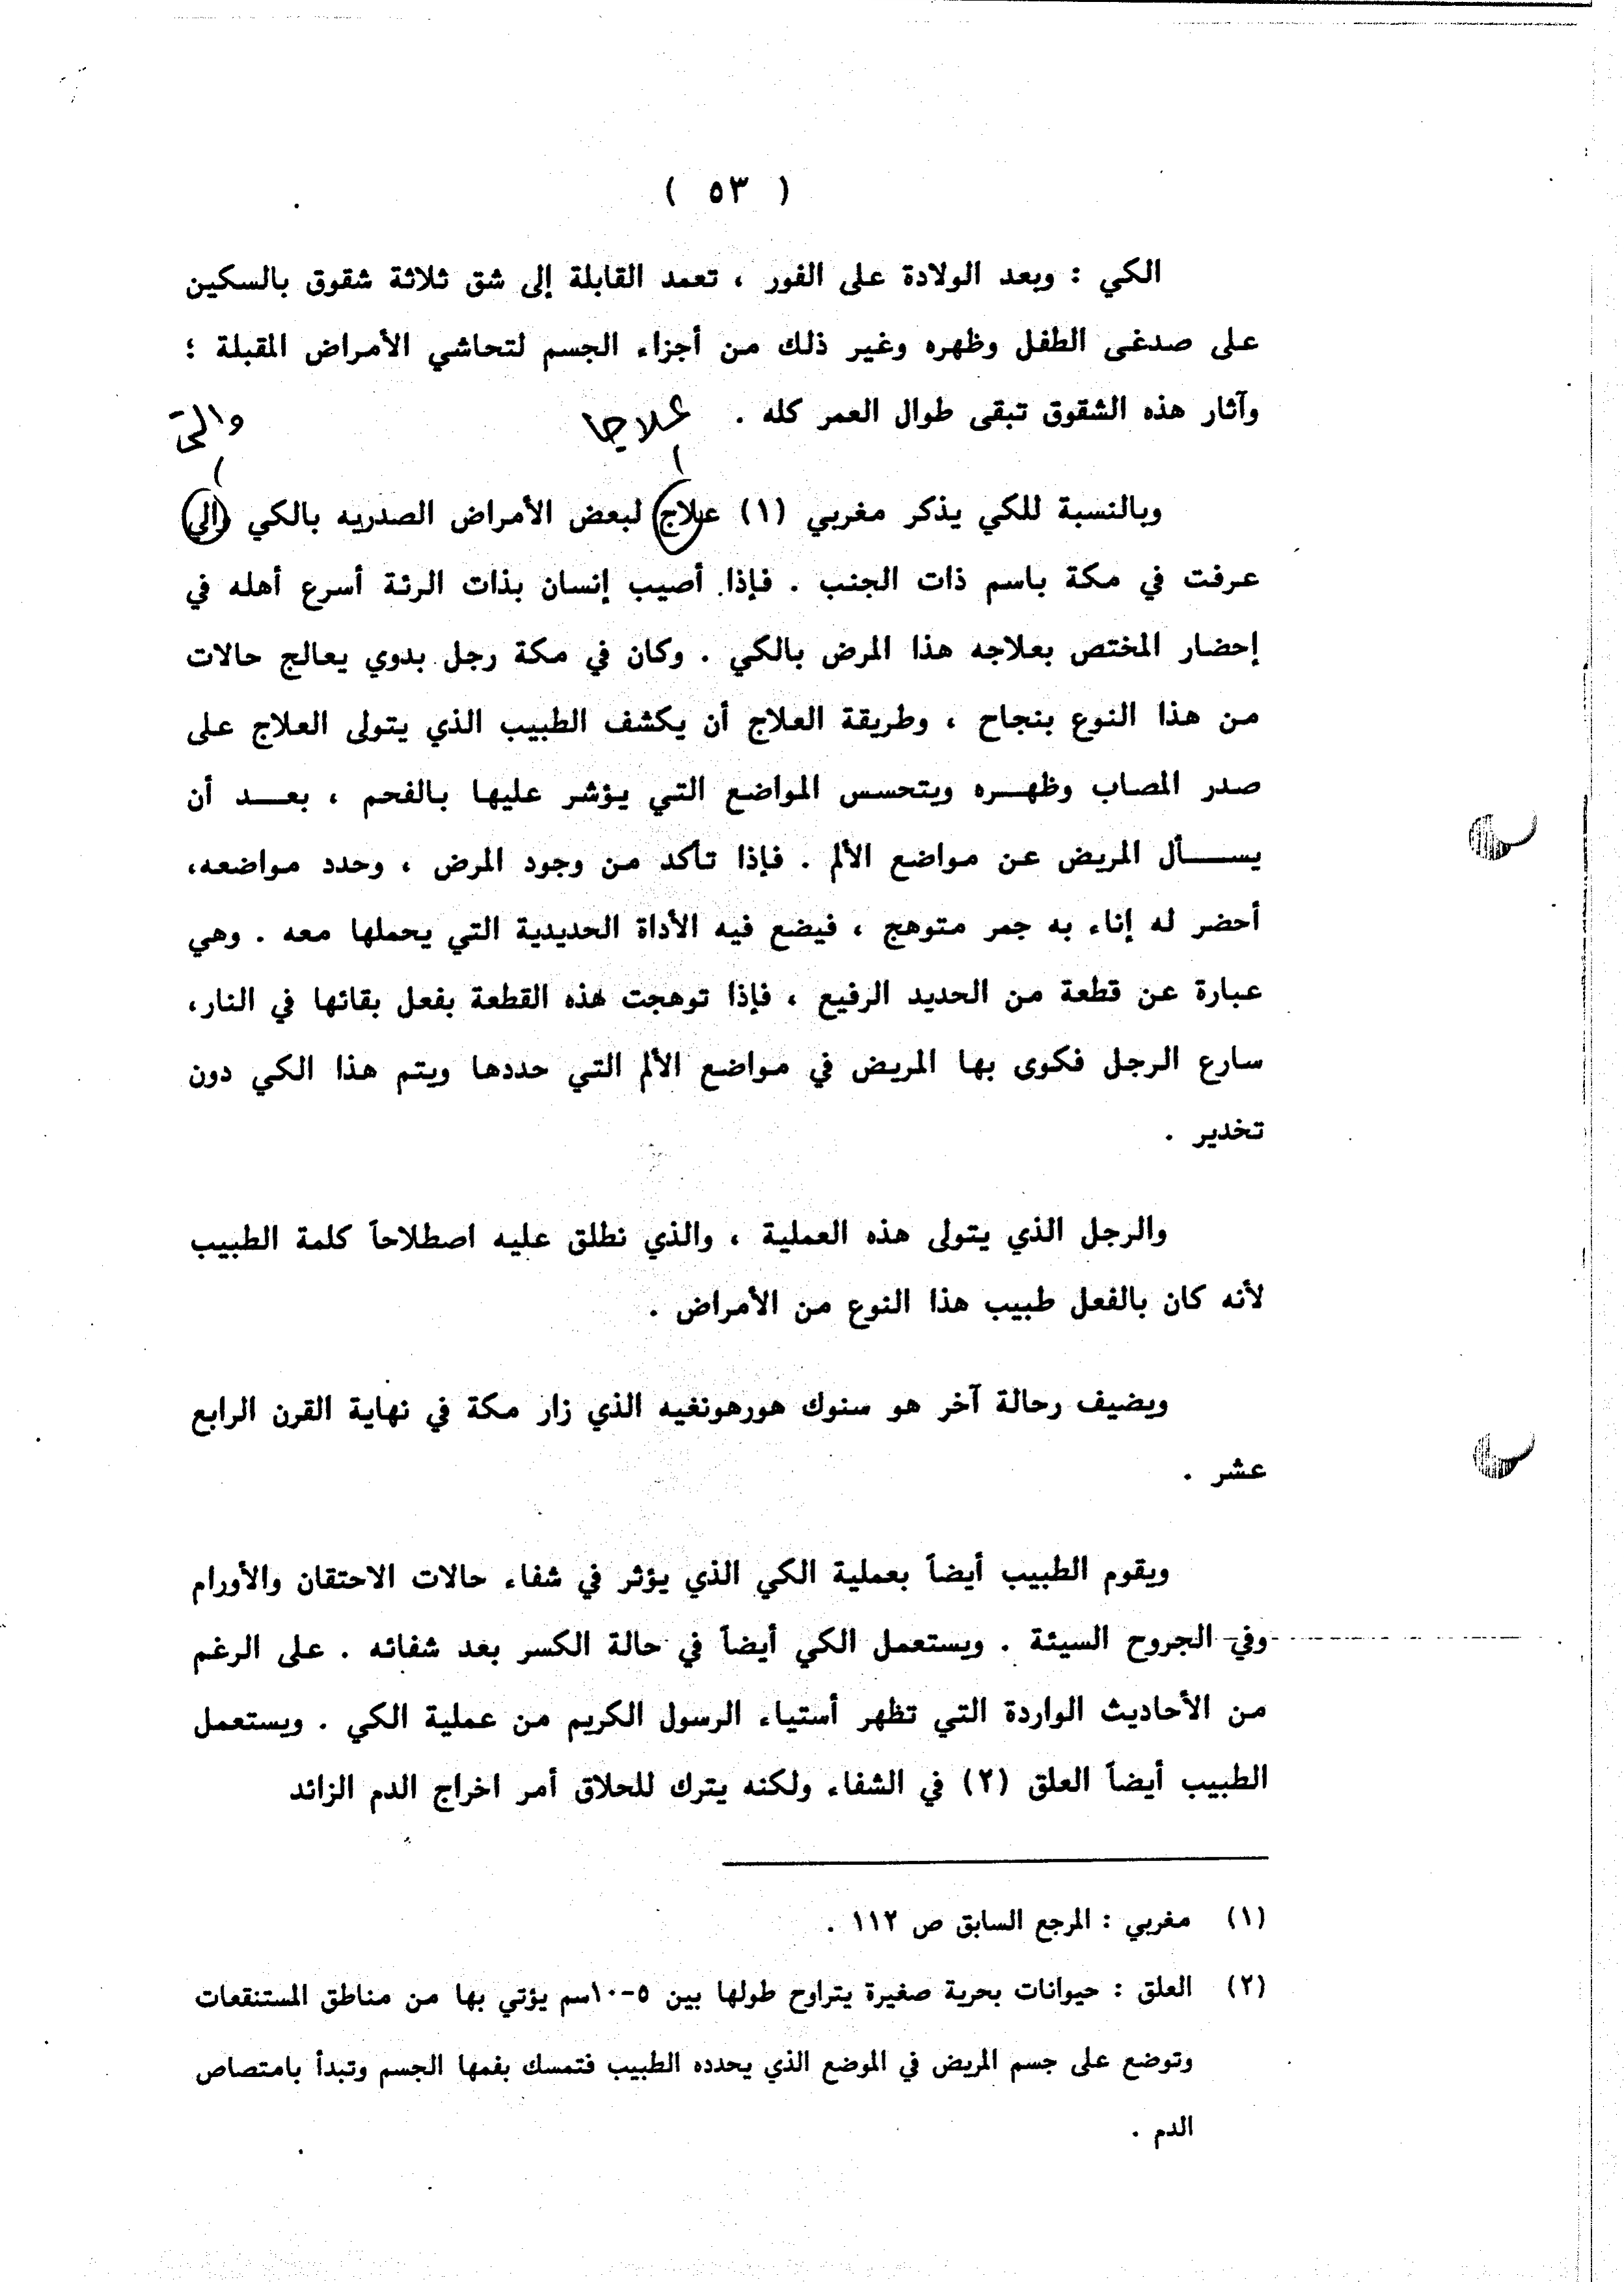 ( ٥٣ )
الكي : وبعد الولادة على الفور ، تعمد القابلة إلى شق ثلاثة شقوق بالسكين
على صدغى الطفل وظهره وغير ذلك من أجزاء الجسم لتحاشي الأمراض المقبلة ؛
وآثار هذه الشقوق تبقى طوال العمر كله .
علاجا
والتي
وبالنسبة للكي يذكر مغربي (١) علاج لبعض الأمراض الصدريه بالكي والي
عرفت في مكة باسم ذات الجنب . فإذا أصيب إنسان بذات الرئة أسرع أهله في
إحضار المختص بعلاجه هذا المرض بالكي . وكان في مكة رجل بدوي يعالج حالات
من هذا النوع بنجاح ، وطريقة العلاج أن يكشف الطبيب الذي يتولى العلاج على
صدر المصاب وظهـــره ويتحسس المواضع التي يؤشر عليها بالفحم ، بعـــد أن
يســـأل المريض عن مواضع الألم . فإذا تأكد من وجود المرض ، وحدد مواضعه،
أحضر له إناء به جمر متوهج ، فيضع فيه الأداة الحديدية التي يحملها معه . وهي
عبارة عن قطعة من الحديد الرفيع ، فإذا توهجت هذه القطعة بفعل بقائها في النار،
سارع الرجل فكوى بها المريض في مواضع الألم التي حددها ويتم هذا الكي دون
تخدير .
والرجل الذي يتولى هذه العملية ، والذي نطلق عليه اصطلاحاً كلمة الطبيب
لأنه كان بالفعل طبيب هذا النوع من الأمراض .
ويضيف رحالة آخر هو سنوك هورهونغيه الذي زار مكة في نهاية القرن الرابع
عشر .
ويقوم الطبيب أيضاً بعملية الكي الذي يؤثر في شفاء حالات الاحتقان والأورام
وفي الجروح السيئة . ويستعمل الكي أيضاً في حالة الكسر بعد شفائه . على الرغم
من الأحاديث الواردة التي تظهر أستياء الرسول الكريم من عملية الكي . ويستعمل
الطبيب أيضاً العلق (٢) في الشفاء ولكنه يترك للحلاق أمر اخراج الدم الزائد
(١) مغربي : المرجع السابق ص ١١٢ .
(٢) العلق : حيوانات بحرية صغيرة يتراوح طولها بين ٥-١٠سم يؤتي بها من مناطق المستنقعات
وتوضع على جسم المريض في الموضع الذي يحدده الطبيب فتمسك بفمها الجسم وتبدأ بامتصاص
الدم .